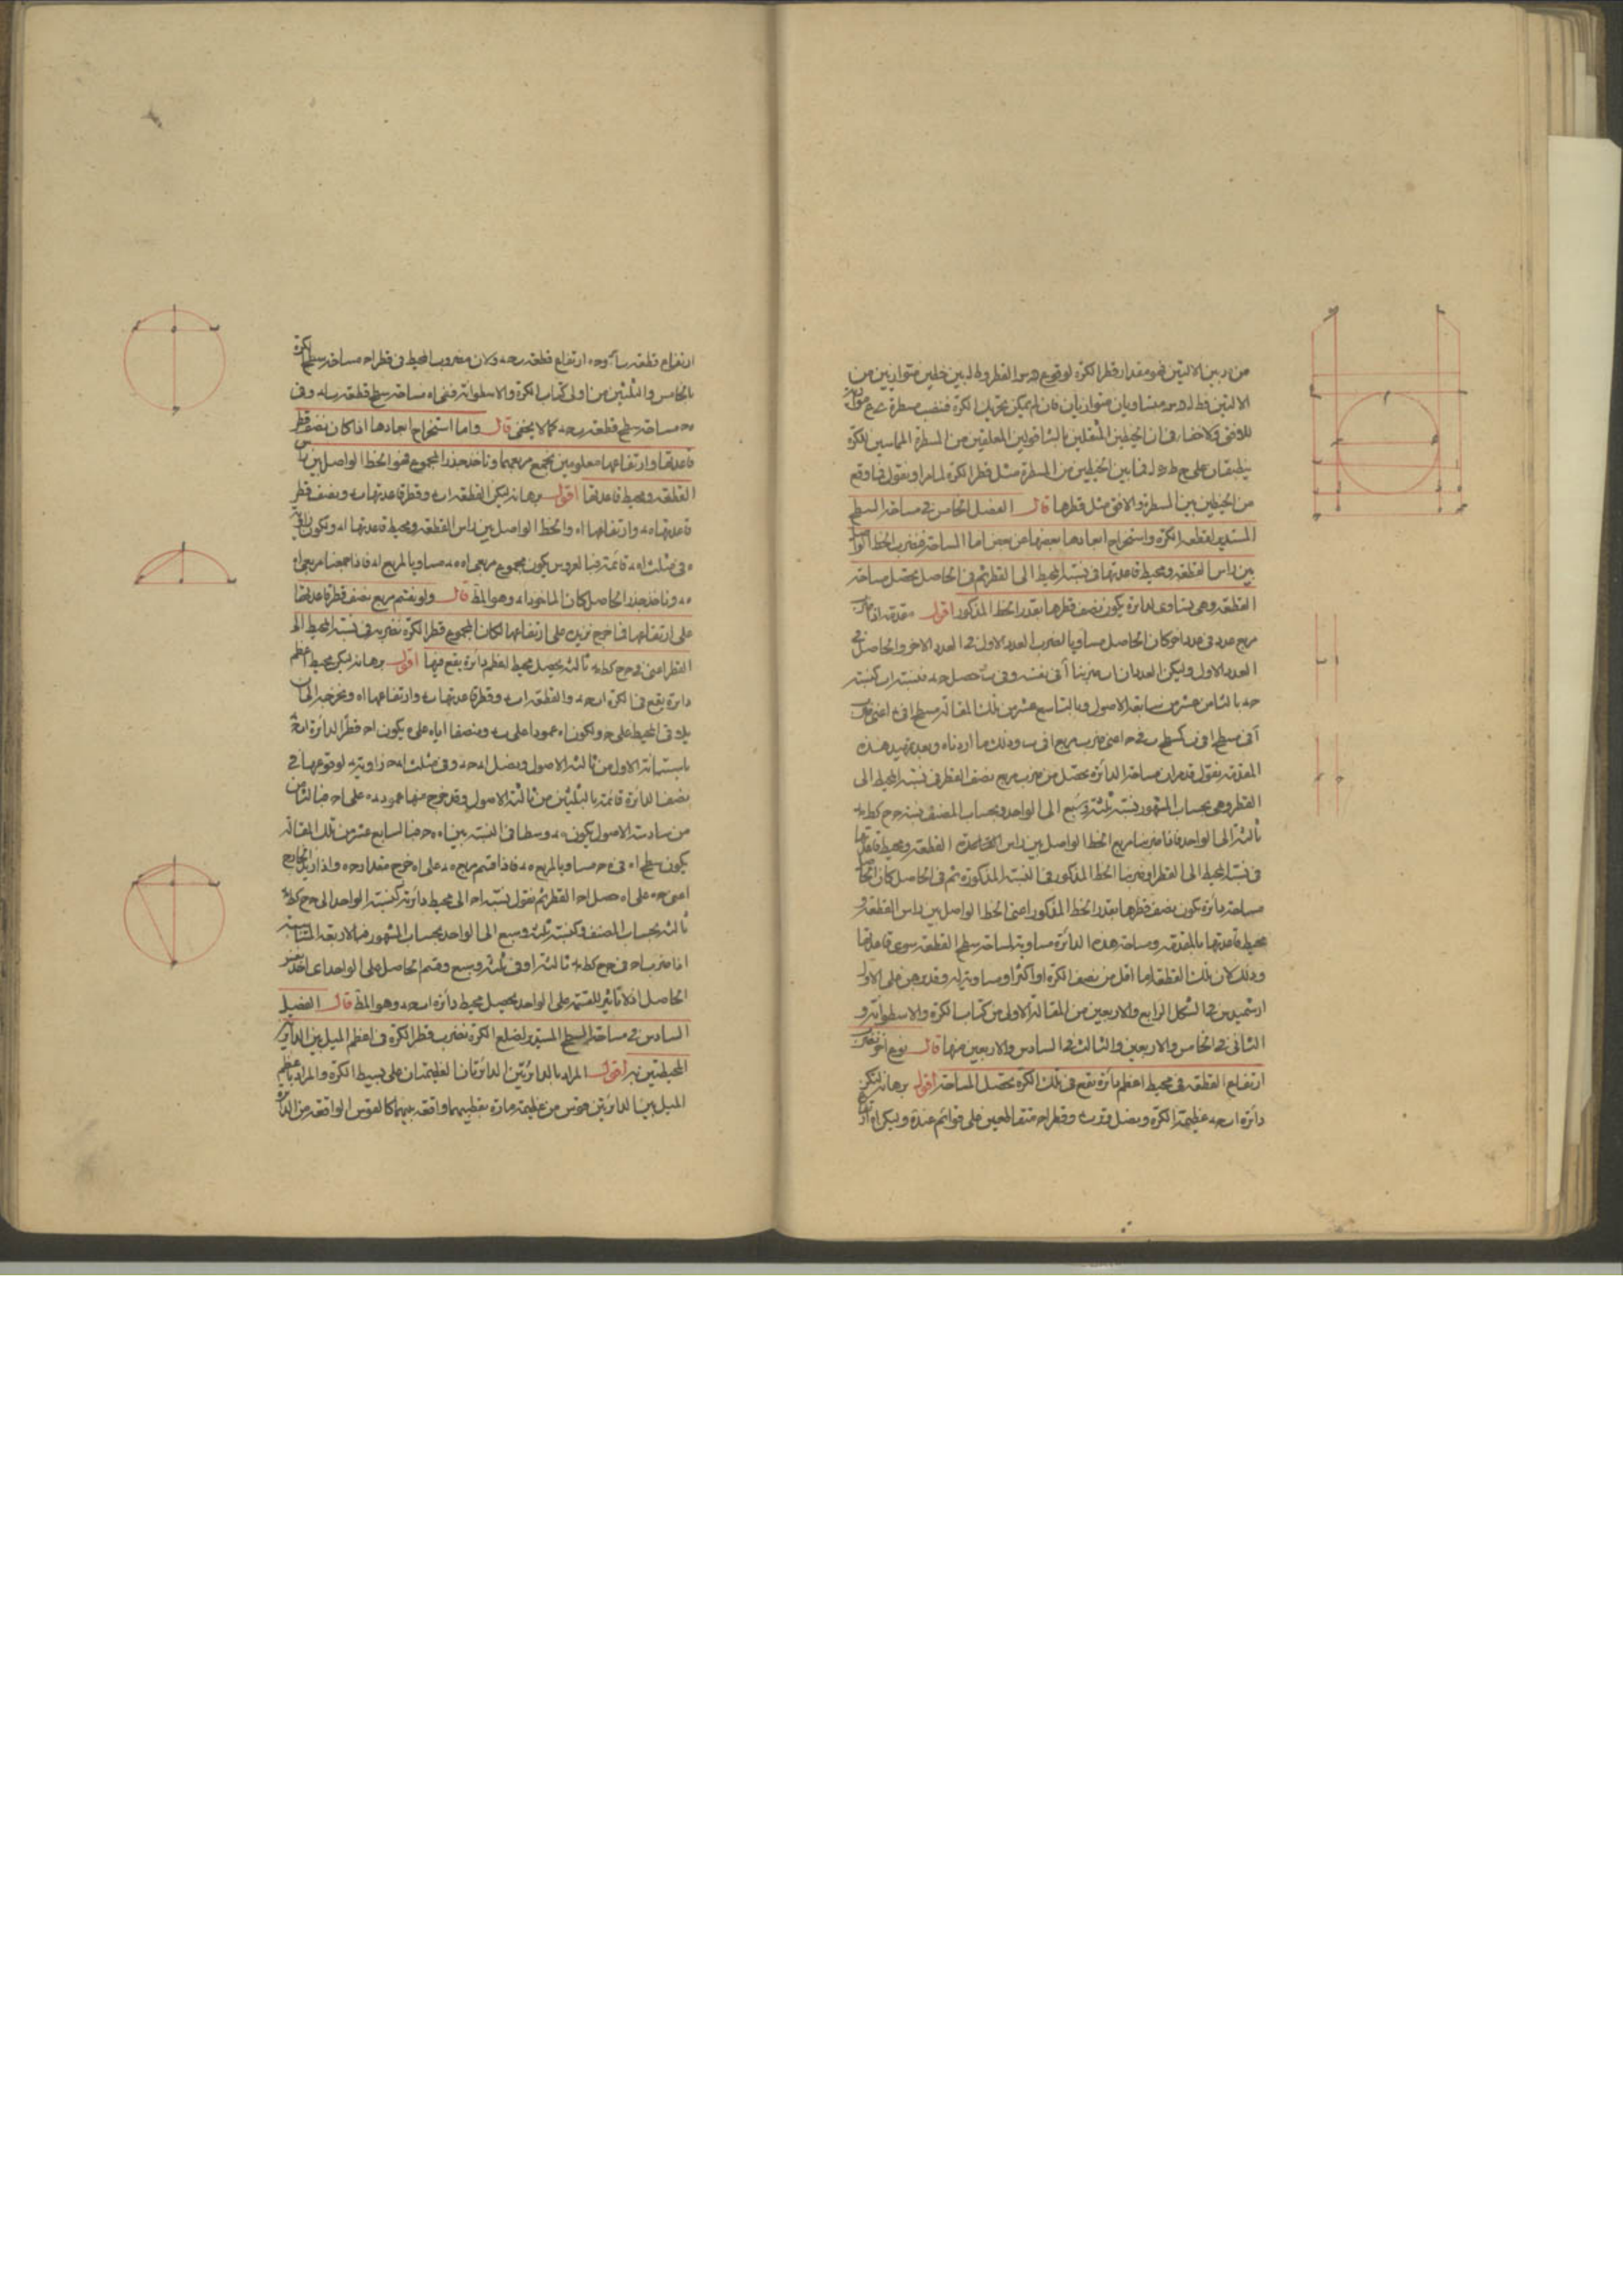 من د بين الالتين فهو مقدار قطر الكرة لوقوع القطر و ط ل بين خطين متوازيين من
الالتين متساويان متوازيان فان لم يمكن تحريك الكرة فننصب مسطرة
للافق ولاخفاء فى ان الخيطين المثقلين بالشاقولين المعلقين من المسطرة المماسين للكرة
ينطبقان على فما بين الخيطين من المسطرة مثل قطر الكرة لما مر او نقول فما وقع
من الخيطين بين المسطرة والافق مثل قطرها قال الفصل الخامس فى مساحة السطح
المستدير لقطعة الكرة واستخراج ابعادها بعضها من بعض اما المساحة فنضرب الخط الواصل
بين راس القطعة ومحيط قاعدتها فى نسبة المحيط الى القطر ثم فى الحاصل يحصل مساحة
القطعة وهى تساوى لدائرة يكون نصف قطرها بقدر الخط المذكور اقول مقدمة اذا ضرب
مربع عدد فى عدد اخر كان الحاصل مساويا لضرب العدد الاول فى العدد الاخر والحاصل فى
العدد الاول وليكن العددان ا ب ضربنا آ فى نفسه وفى ب حصل ح د فنسبة ا ب كنسبة
ح د بالثامن عشر من سابعة الاصول وبالتاسع عشر من تلك المقالة مسطح ا فى د اعنى
وذلك ما اردناه وبعد تمهيد هذه
المقدمة نقول قد مر ان مساحة الدائرة تحصل من ضرب مربع نصف القطر فى نسبة المحيط الى
القطر وهى بحساب المشهور نسبة ثلثة وسبع الى الواحد وبحساب المصنف نسبة ح ح كط مد
ثالثة الى الواحد فاذا ضربنا مربع الخط الواصل بين راس القطعة ومحيط قاعدتها
فى نسبة المحيط الى القطر او ضربنا الخط المذكور فى النسبة المذكورة ثم فى الحاصل كان الحاصل
مساحة دائرة يكون نصف قطرها بقدر الخط المذكور اعنى الخط الواصل بين راس القطعة و
محيط قاعدتها بالمقدمة ومساحة هذه الدائرة مساوية لمساحة سطح القطعة سوى قاعدتها
وذلك لان تلك القطعة اما اقل من نصف الكرة او اكثر او مساوية له وقد برهن على الاول
ارشميدس فى الشكل الرابع والاربعين من المقالة الاولى من كتاب الكرة والاسطوانة و
الثانى فى الخامس والاربعين والثالث فى السادس والاربعين منها قال نوع اخر نضرب
ارتفاع القطعة فى محيط اعظم دائرة يقع فى تلك الكرة يحصل المساحة اقول برهانه ليكن
دائرة ا ب ح د عظيمة الكرة ونصل وقطر ا ح متقاطعين على قوائم عند ه وليكن ا ه
ارتفاع قطعة ب ا د و ح ه ارتفاع قطعة ب ح د ولان مضروب المحيط فى قطر ا ح مساحة سطح الكرة
بالخامس والثلثين من اولى كتاب الكرة والاسطوانة ففى ا ه مساحة سطح قطعة ب ا د وفى
ه ح مساحة سطح قطعة ب ح د كما لا يخفى قال واما استخراج ابعادها اذا كان نصف قطر
قاعدتها وارتفاعها معلومين نجمع مربعيهما وناخذ جذر المجموع فهو الخط الواصل بين راس
القطعة ومحيط قاعدتها اقول برهانه ليكن القطعة ا ب د وقطر قاعدتها ب د ونصف قطر
قاعدتها ه د وارتفاعها ا ه والخط الواصل بين راس القطعة ومحيط قاعدتها ا د ولكون زاوية
ه فى مثلث ا ه د قائمة فبالعروس يكون مجموع مربعى ا ه ه د مساويا لمربع ا د فاذا جمعنا مربعى ا ه
ه د وناخذ جذر الحاصل كان الماخوذ ا د وهو المط قال ولو نقسم مربع نصف قطر قاعدتها
على ارتفاعها فما خرج نزيد على ارتفاعها لكان المجموع قطر الكرة نضربه فى نسبة المحيط الى
القطر اعنى فى ح ح كط مد ثالثة يحصل محيط اعظم دائرة يقع فيها اقول برهانه ليكن محيط اعظم
دائرة يقع فى الكرة ا ب ح د والقطعة ا ب د وقطر قاعدتها ب د وارتفاعها ا ه ونخرجه الى ان
يلاقى المحيط على ح ولكون ا ه عمودا على ب د ومنصفا اياه على ه يكون ا ح قطرا لدائرة ا ب ح د
باستبانة الاول من ثالثة الاصول ونصل ا د ح د وفى مثلث ا د ح زاوية د لوقوعها فى
نصف الدائرة قائمة بالثلثين من ثالثة الاصول وقد خرج منها عمود د ه على ا ح فبالثامن
من سادسة الاصول يكون ه د وسطا فى النسبة بين ا ه ه ح فبالسابع عشر من تلك المقالة
يكون سطح ا ه فى ه ح مساويا لمربع ه د فاذا قسم مربع ه د على ا ه خرج مقدار ح ه واذا زيد الخارج
اعنى ح ه على ا ه حصل ا ح القطر ثم نقول نسبة ا ح الى محيط دائرته كنسبة الواحد الى ح ح كط مد
ثالثة بحساب المصنف وكنسبة ثلثة وسبع الى الواحد بحساب المشهور فبالاربعة المتناسبة
اذا ضرب ا ح فى ح ح كط مد ثالثة او فى ثلثة وسبع وقسم الحاصل على الواحد اى اخذ نفس
الحاصل اذ لا تاثير للقسمة على الواحد يحصل محيط دائرة ا ب ح د وهو المط قال الفصل
السادس فى مساحة السطح المستدير لضلع الكرة نضرب قطر الكرة فى اعظم الميل بين الدائرتين
المحيطتين به اقول المراد بالدائرتين الدائرتان العظيمتان على بسيط الكرة والمراد باعظم
الميل بين الدائرتين قوس من عظيمة مارة بقطبيهما واقعة بينهما كالقوس الواقعة من الدائرة